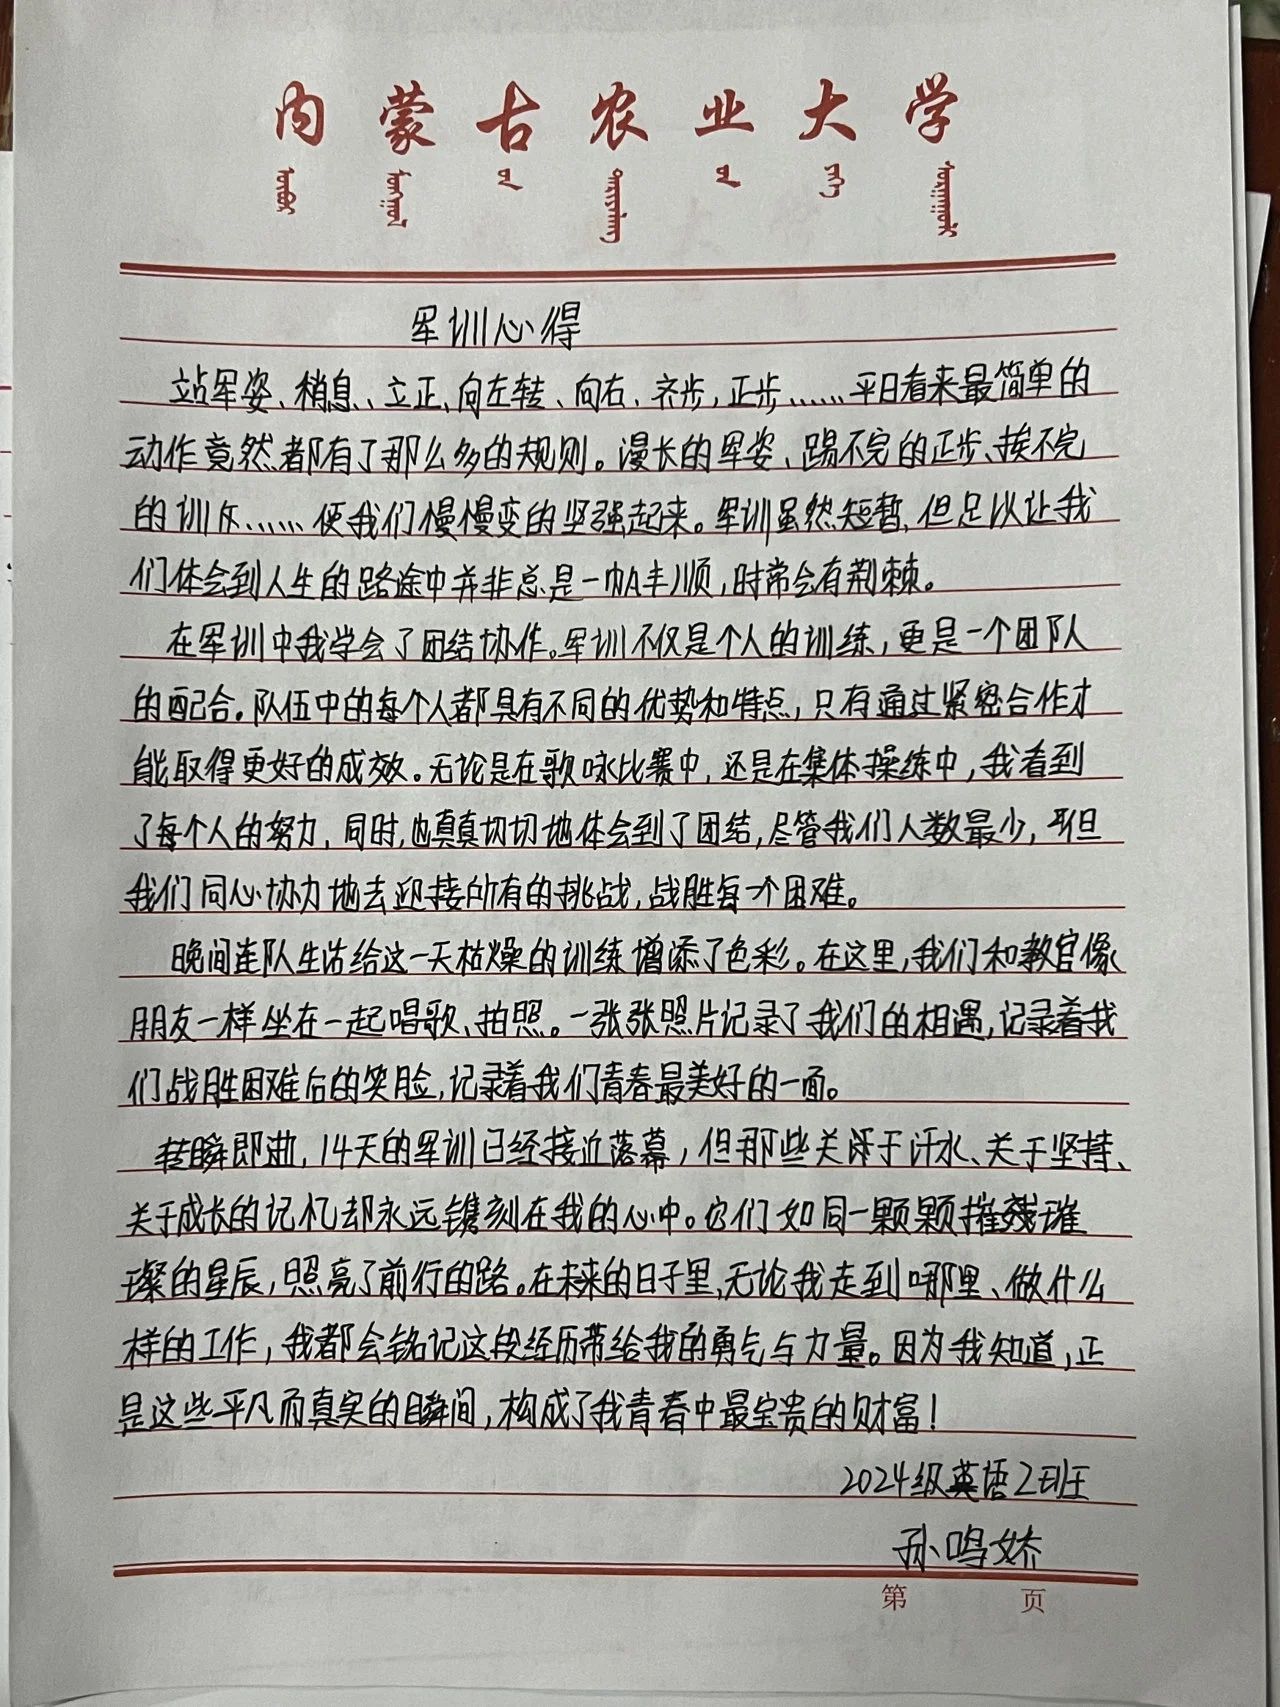 内蒙古农业大学
军训心得
站军姿、稍息、立正、向左转、向右、齐步,正步……平日看来最简单的
动作竟然都有了那么多的规则。漫长的军姿、踢不完的正步、挨不完
的训斥……使我们慢慢变的坚强起来。军训虽然短暂,但足以让我
们体会到人生的路途中并非总是一帆丰顺,时常会有荆棘。
在军训中我学会了团结协作。军训不仅是个人的训练,更是一个团队
的配合。队伍中的每个人都具有不同的优势和特点,只有通过紧密合作才
能取得更好的成效。无论是在歌咏比赛中,还是在集体操练中,我看到
了每个人的努力,同时,也真真切切地体会到了团结,尽管我们人数最少,但
我们同心协力地去迎接所有的挑战,战胜每一个困难。
晚间连队生活给这一天枯燥的训练增添了色彩。在这里,我们和教官像
朋友一样坐在一起唱歌、拍照。一张张照片记录了我们的相遇,记录着我
们战胜困难后的笑脸,记录着我们青春最美好的一面。
转瞬即逝,14天的军训已经接近落幕,但那些关于汗水、关于坚持、
关于成长的记忆却永远镌刻在我的心中。它们如同一颗颗璀
璨的星辰,照亮了前行的路。在未来的日子里,无论我走到哪里、做什么
样的工作,我都会铭记这段经历带给我的勇气与力量。因为我知道,正
是这些平凡而真实的瞬间,构成了我青春中最宝贵的财富!
2024级英语2班
孙鸣娇
第 页